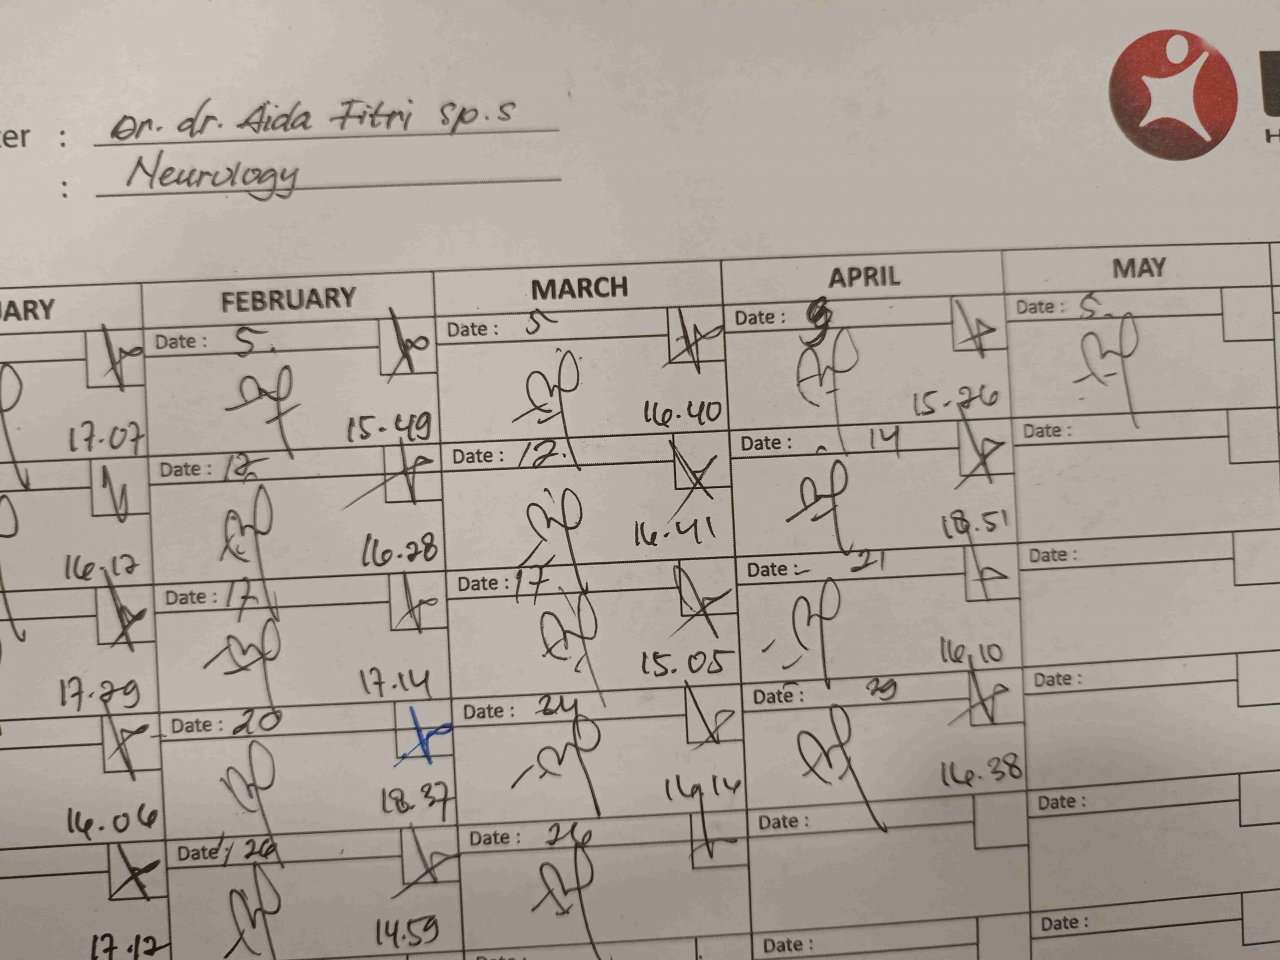 er : Dr. dr. Aida Fitri Sp.S
: Neurology
H
UARY FEBRUARY MARCH APRIL MAY
Date : 5. Date : 5 Date : Date : 5.
17.07 15.49 16.40 15.26
Date : 12 Date : 12. Date : 14 Date :
16.12 16.28 16.41 18.51
Date : 17 Date : 17. Date : 21 Date :
17.29 17.14 15.05 16.10
Date : 20 Date : 24 Date : 29 Date :
16.06 18.37 16.14 16.38
Date : 26 Date : 26 Date : Date :
17.12 14.59
Date : Date : Date :